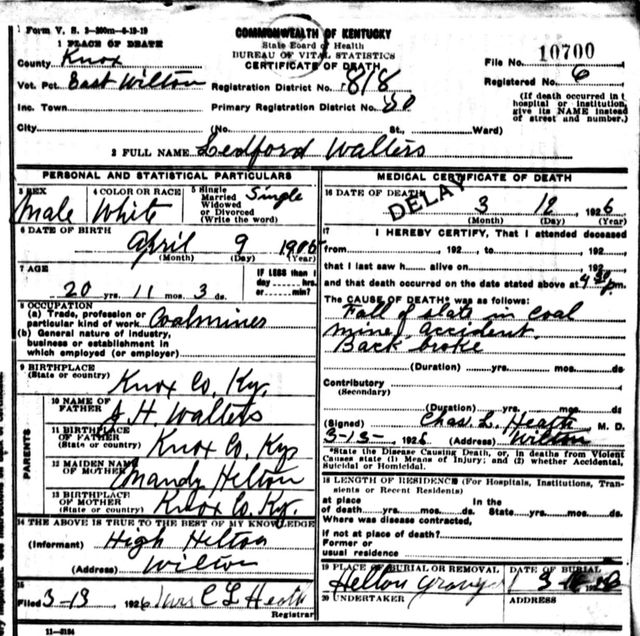 Form V. S. 3-300m-6-19-19
COMMONWEALTH OF KENTUCKY
State Board of Health
BUREAU OF VITAL STATISTICS
CERTIFICATE OF DEATH
File No. 10700
Registered No. 6
(If death occurred in
hospital or institution,
give its NAME instead
of street and number.)
1 PLACE OF DEATH
County Knox
Vot. Pct. East Wilton
Registration District No. 818
Inc. Town
Primary Registration District No.
City
(No. St., Ward)
2 FULL NAME Ledford Walters
PERSONAL AND STATISTICAL PARTICULARS
3 SEX
Male
4 COLOR OR RACE
White
5 Single
Married
Widowed
or Divorced
(Write the word)
Single
6 DATE OF BIRTH
April 9 1906
(Month) (Day) (Year)
7 AGE
20 yrs. 11 mos. 3 ds.
IF LESS than 1
day hrs.
or min.?
8 OCCUPATION
(a) Trade, profession or
particular kind of work Coalmines
(b) General nature of industry,
business or establishment in
which employed (or employer)
9 BIRTHPLACE
(State or country)
Knox Co. Ky.
PARENTS
10 NAME OF
FATHER
H Walters
11 BIRTHPLACE
OF FATHER
(State or country)
Knox Co. Ky
12 MAIDEN NAME
OF MOTHER
Mandy Helton
13 BIRTHPLACE
OF MOTHER
(State or country)
Knox Co. Ky.
14 THE ABOVE IS TRUE TO THE BEST OF MY KNOWLEDGE
(Informant) High Helton
(Address) Wilton
15
Filed 3-13 1926 Mrs C L Heath
Registrar
11-3184
MEDICAL CERTIFICATE OF DEATH
16 DATE OF DEATH
DELAY
3 12, 1926
(Month) (Day) (Year)
17 I HEREBY CERTIFY, That I attended deceased
from, 192 to, 192
that I last saw h alive on, 192
and that death occurred on the date stated above at 4 30 p m.
The CAUSE OF DEATH* was as follows:
Fall of slate in coal
mine, accident.
Back broke
(Duration) yrs. mos. ds.
Contributory
(Secondary)
(Duration) yrs. mos. ds.
(Signed) Chas. L. Heath M. D.
3-13- 1926 (Address) Wilton
*State the Disease Causing Death, or, in deaths from Violent
Causes state (1) Means of Injury; and (2) whether Accidental,
Suicidal or Homicidal.
18 LENGTH OF RESIDENCE (For Hospitals, Institutions, Tran-
sients or Recent Residents)
at place In the
of death yrs. mos. ds. State yrs. mos. ds.
Where was disease contracted,
if not at place of death?
Former or
usual residence
19 PLACE OF BURIAL OR REMOVAL
Helton
DATE OF BURIAL
20 UNDERTAKER
ADDRESS